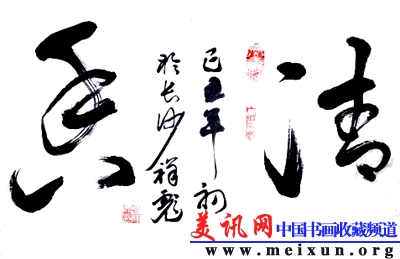 清
己丑年初
於长沙祥彪
香
美讯网中国书画收藏频道
www.meixun.org